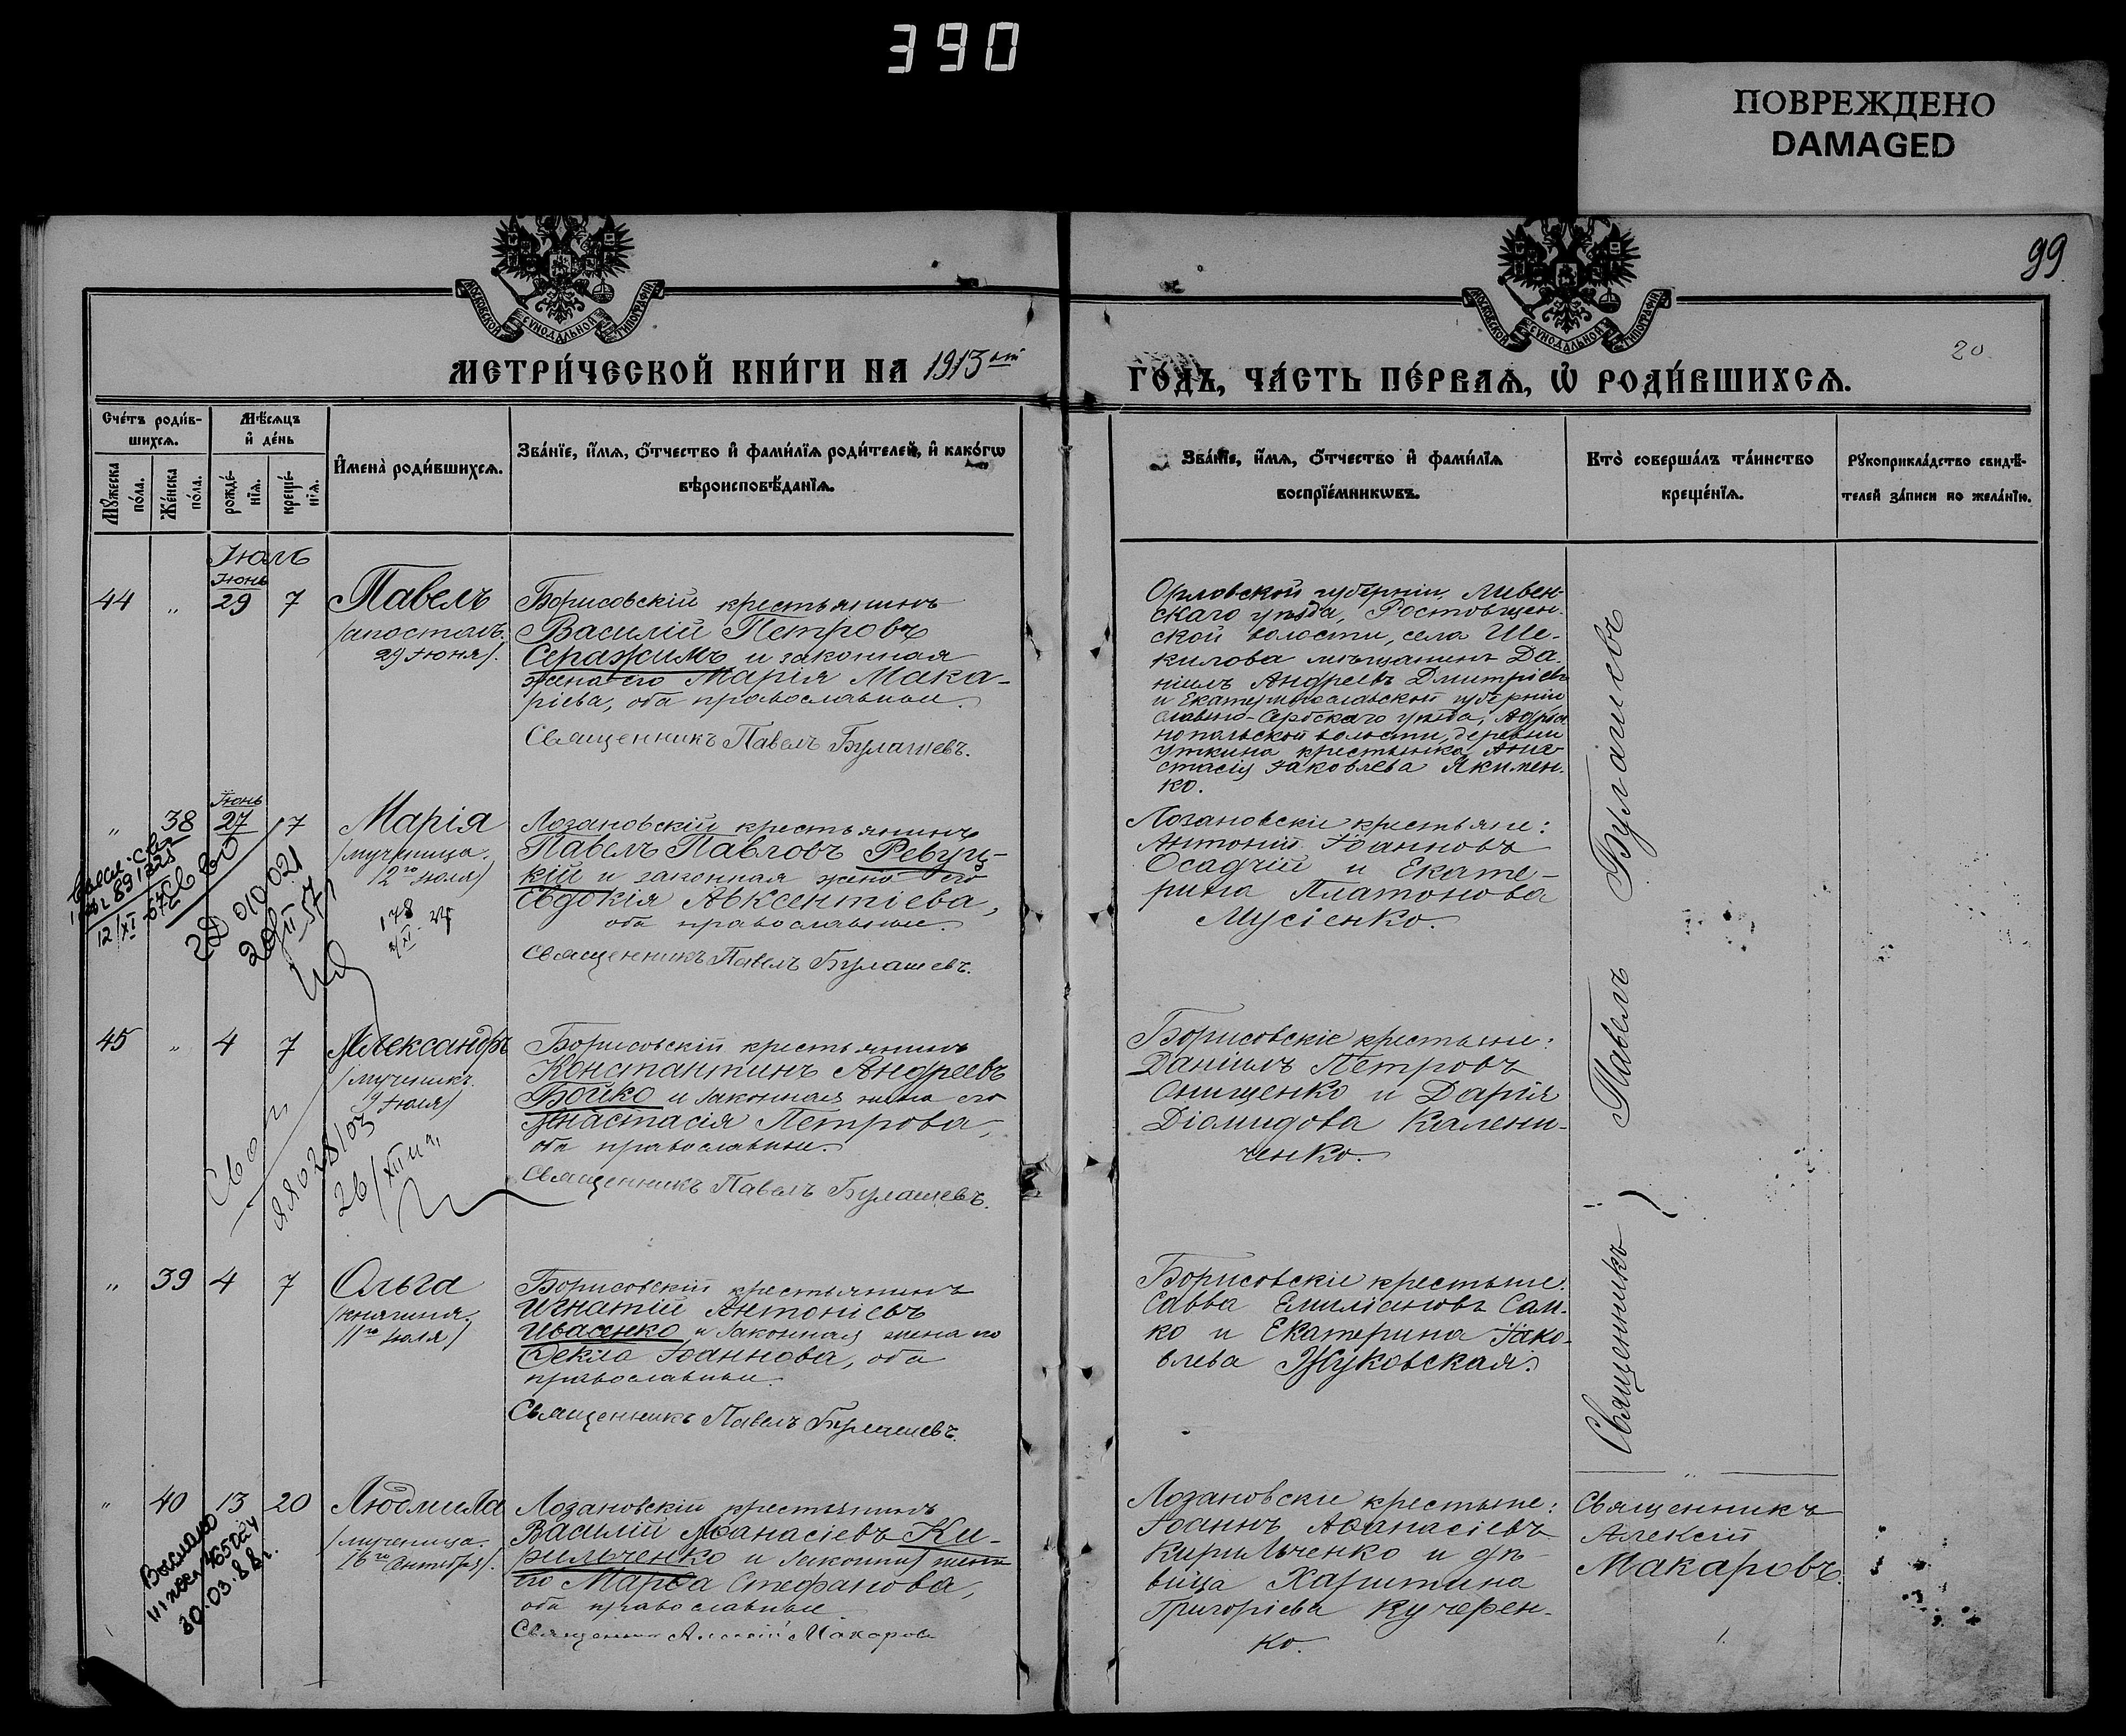 390
ПОВРЕЖДЕНО
DAMAGED
99
20
МОСКОВСКОЙ СУНОДАЛЬНОЙ ТИПОГРАФІИ
МОСКОВСКОЙ СУНОДАЛЬНОЙ ТИПОГРАФІИ
МЕТРИ́ЧЕСКОЙ КНИ́ГИ НА 1913 ый
ГО́ДЪ, ЧА́СТЬ ПЕ́РВАѦ, Ѡ҆ РОДИ́ВШИХСѦ.
Сче́тъ роди́в-
шихсѧ.
Мꙋ́жеска по́ла.
Же́нска по́ла.
Мѣ́сѧцъ
и҆ де́нь
рожде́-
нїѧ.
креще́-
нїѧ.
И҆мена̀ роди́вшихсѧ.
Зва́нїе, и҆́мѧ, ѻ҆́тчество и҆ фами́лїѧ роди́телей, и҆ како́гѡ
вѣроисповѣ́данїѧ.
Зва́нїе, и҆́мѧ, ѻ҆́тчество и҆ фами́лїѧ
воспрїе́мникѡвъ.
Кто̀ соверша́лъ та́инство
креще́нїѧ.
Рꙋкоприкла́дство свидѣ́-
телей за́писи по жела́нїю.
Іюль
44 „ Іюнь 29 7
Павелъ
/апостолъ.
29 Іюня/.
Борисовскій крестьянинъ
Василій Петровъ
Серажимъ и законная
жена его Марія Мака-
ріева, оба православные.
Священникъ Павелъ Булашевъ.
Орловской губерніи, Ливен-
скаго уѣзда, Ростовщен-
ской волости, села Ше-
килова мѣщанинъ Да-
ніилъ Андреевъ Дмитріевъ
и Екатеринославской губерніи
Славяно-Сербскаго уѣзда, Адріа-
нопольской волости, деревни
Уткина крестьянка Ана-
стасія Іаковлева Якимен-
ко.
„ 38 Іюнь 27 7
Марія
/мученица.
12го Іюля/
Лозановскій крестьянинъ
Павелъ Павловъ Ревуц-
кій и законная жена его
Евдокія Авксентіева,
оба православные.
Священникъ Павелъ Булашевъ.
Лозановскіе крестьяне:
Антоній Іоанновъ
Осадчій и Екате-
рина Платонова
Мусіенко.
12/XI
2D 010021
20/II-57
178
45 „ 4 7
Александръ
/мученикъ.
9 Іюля/
Борисовскій крестьянинъ
Константинъ Андреевъ
Бойко и законная жена его
Анастасія Петрова,
оба православные.
Священникъ Павелъ Булашевъ.
Борисовскіе крестьяне:
Даніилъ Петровъ
Онищенко и Дарія
Діомидова Калени-
ченко.
Священникъ Павелъ Булашевъ
„ 39 4 7
Ольга
/княгиня.
11го Іюля/
Борисовскій крестьянинъ
Игнатій Антоніевъ
Иваненко и законная жена его
Ѳекла Іоаннова, оба
православные.
Священникъ Павелъ Булашевъ.
Борисовскіе крестьяне:
Савва Емиліановъ Сам-
ко и Екатерина Іако-
влева Жуковская.
„ 40 13 20
Людмила
/мученица.
16го Сентября/.
Лозановскій крестьянинъ
Василій Аѳанасіевъ Ки-
рильченко и законная жена
его Марѳа Стефанова,
оба православные.
Священникъ Алексій Макаровъ
Лозановскіе крестьяне:
Іоаннъ Аѳанасіевъ
Кирильченко и дѣ-
вица Харитина
Григоріева Кучерен-
ко.
Священникъ
Алексій
Макаровъ.
Выслано
30.03.88г.